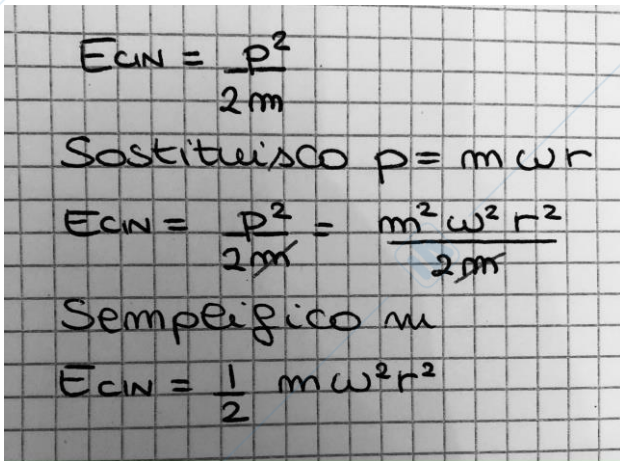 E_CIN = p²/2m
Sostituisco p = mωr
E_CIN = p²/2m = m²ω²r²/2m
Semplifico m
E_CIN = 1/2 mω²r²